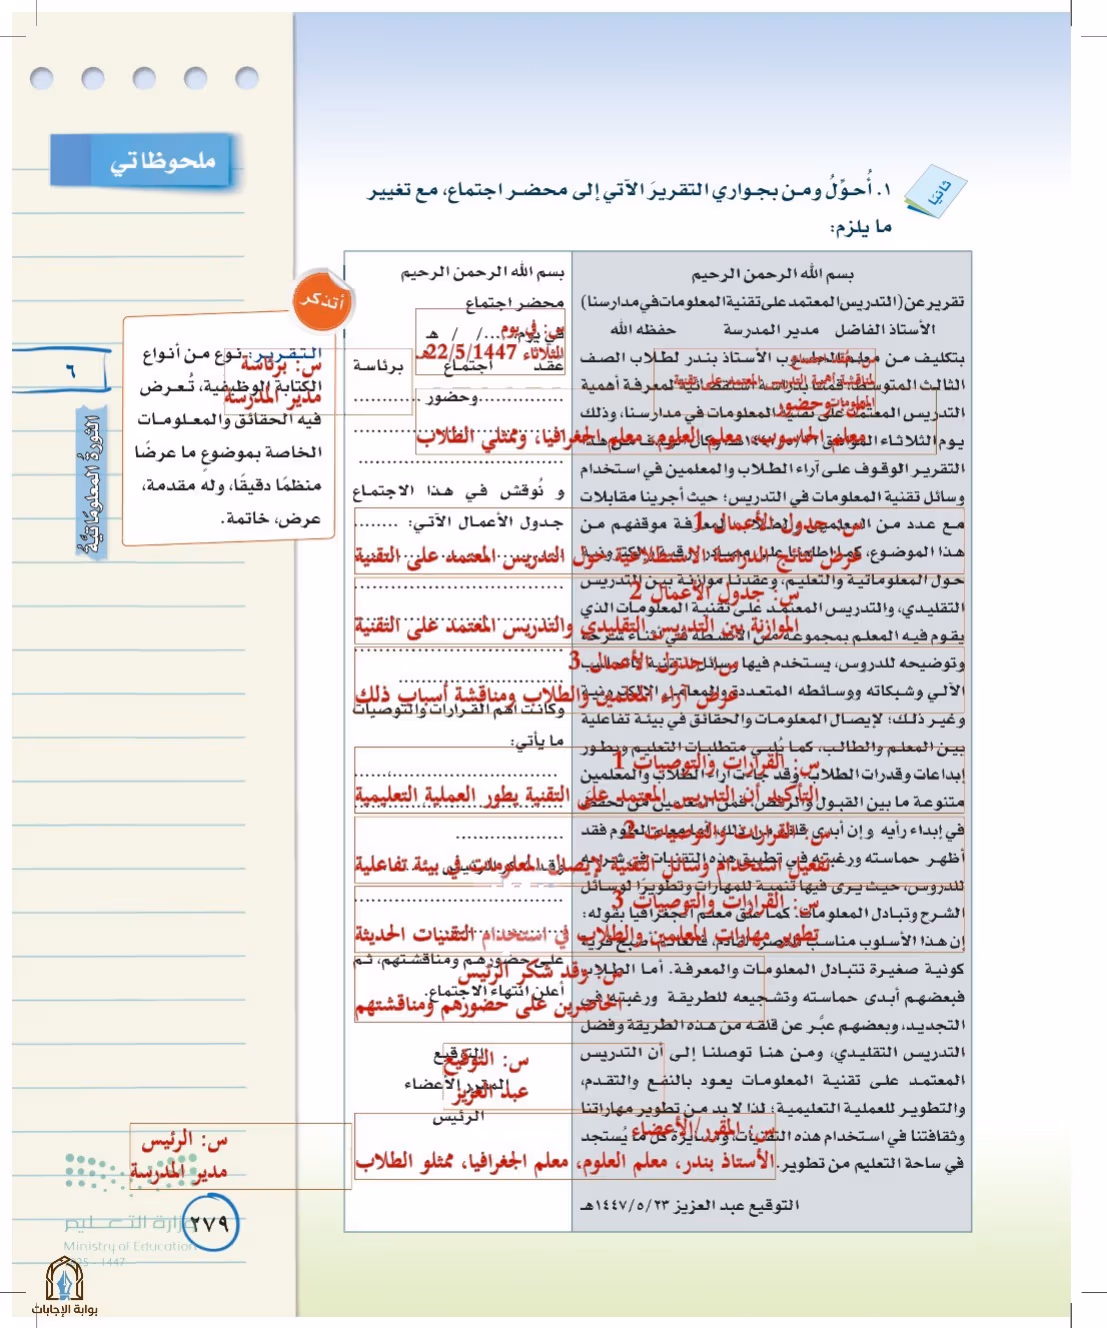 ملحوظاتي
ثانيًا
١. أُحوِّلُ ومن بجواري التقريرَ الآتي إلى محضر اجتماع، مع تغيير
ما يلزم:
بسم الله الرحمن الرحيم
تقرير عن (التدريس المعتمد على تقنية المعلومات في مدارسنا)
الأستاذ الفاضل مدير المدرسة حفظه الله
بتكليف من معلم الحاسوب الأستاذ بندر لطلاب الصف
الثالث المتوسط، قمنا بدراسة لمعرفة أهمية
التدريس المعتمد على تقنية المعلومات في مدارسنا، وذلك
يوم الثلاثاء الموافق
التقرير الوقوف على آراء الطلاب والمعلمين في استخدام
وسائل تقنية المعلومات في التدريس؛ حيث أجرينا مقابلات
مع عدد من المعلمين والطلاب لمعرفة موقفهم من
هذا الموضوع، كما اطلعنا على مصادر ورقية وإلكترونية
حول المعلوماتية والتعليم، وعقدنا موازنة بين التدريس
التقليدي، والتدريس المعتمد على تقنية المعلومات الذي
يقوم فيه المعلم بمجموعة من الأنشطة في أثناء شرحه
وتوضيحه للدروس، يستخدم فيها وسائل
الآلي وشبكاته ووسائطه المتعددة والمعامل الإلكترونية
وغير ذلك؛ لإيصال المعلومات والحقائق في بيئة تفاعلية
بين المعلم والطالب، كما يُلبي متطلبات التعليم ويطور
إبداعات وقدرات الطلاب وقد جاءت آراء الطلاب والمعلمين
متنوعة ما بين القبول والرفض، فمن المعلمين من تحفظ
في إبداء رأيه وإن أبدى معلم العلوم فقد
أظهر حماسته ورغبته في تطبيق هذه التقنيات في شرحه
للدروس، حيث يرى فيها تنمية للمهارات وتطويرًا لوسائل
الشرح وتبادل المعلومات. كما علق معلم الجغرافيا بقوله:
إن هذا الأسلوب مناسب صبح قرية
كونية صغيرة تتبادل المعلومات والمعرفة. أما الطلاب
فبعضهم أبدى حماسته وتشجيعه للطريقة ورغبته في
التجديد، وبعضهم عبَّر عن قلقه من هذه الطريقة وفضل
التدريس التقليدي، ومن هنا توصلنا إلى أن التدريس
المعتمد على تقنية المعلومات يعود بالنفع والتقدم،
والتطوير للعملية التعليمية؛ لذا لا بد من تطوير مهاراتنا
وثقافتنا في استخدام هذه التقنيات، ومسايرة كل ما يُستجد
في ساحة التعليم من تطوير.
التوقيع عبد العزيز ١٤٤٧/٥/٢٣هـ
بسم الله الرحمن الرحيم
محضر اجتماع
في يوم..... / / هـ
عقد اجتماع برئاسة
...........وحضور...........
و نُوقش في هذا الاجتماع
جدول الأعمال الآتي: ........
وكانت أهم القرارات والتوصيات
ما يأتي:
على حضورهم ومناقشتهم، ثم
أعلن انتهاء الاجتماع.
التوقيع
المقرر الأعضاء
الرئيس
س: في يوم
الثلاثاء 22/5/1447هـ
س: برئاسة
مدير المدرسة
س: عُقد اجتماع
لمناقشة أهمية التدريس المعتمد على تقنية
المعلومات
س: وحضور
معلم الحاسوب، معلم العلوم، معلم الجغرافيا، وممثلي الطلاب
س: جدول الأعمال 1
عرض نتائج الدراسة الاستطلاعية حول التدريس المعتمد على التقنية
س: جدول الأعمال 2
الموازنة بين التدريس التقليدي والتدريس المعتمد على التقنية
س: جدول الأعمال 3
عرض آراء المعلمين والطلاب ومناقشة أسباب ذلك
س: القرارات والتوصيات 1
التأكيد أن التدريس المعتمد على التقنية يطور العملية التعليمية
س: القرارات والتوصيات 2
تفعيل استخدام وسائل التقنية لإيصال المعلومات في بيئة تفاعلية
س: القرارات والتوصيات 3
تطوير مهارات المعلمين والطلاب في استخدام التقنيات الحديثة
س: وقد شكر الرئيس
الحاضرين على حضورهم ومناقشتهم
س: التوقيع
عبد العزيز
س: المقرر/الأعضاء
الأستاذ بندر، معلم العلوم، معلم الجغرافيا، ممثلو الطلاب
س: الرئيس
مدير المدرسة
أتذكر
التقرير: نوع من أنواع
الكتابة الوظيفية، تُعرض
فيه الحقائق والمعلومات
الخاصة بموضوعٍ ما عرضًا
منظمًا دقيقًا، وله مقدمة،
عرض، خاتمة.
٦
الثورةُ المعلوماتيَّةُ
وزارة التعليم
٢٧٩
Ministry of Education
2025 - 1447
بوابة الإجابات